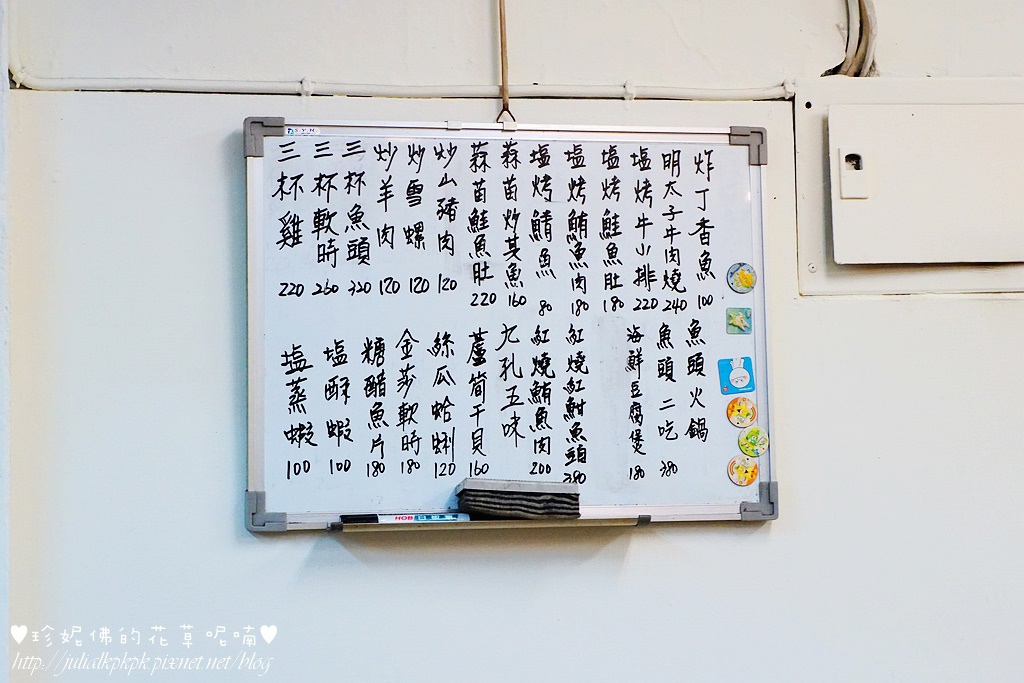 炸丁香魚 100
明太子牛肉燒 240
塩烤牛小排 220
塩烤鮭魚肚 180
塩烤鮪魚肉 180
塩烤鯖魚 80
蒜苗炒其魚 160
蒜苗鮭魚肚 220
炒山豬肉 120
炒雪螺 120
炒羊肉 120
三杯魚頭 320
三杯軟時 260
三杯雞 220
魚頭火鍋
魚頭二吃 380
海鮮豆腐煲 180
紅燒紅魽魚頭 380
紅燒鮪魚肉 200
九孔五味
蘆筒干貝 160
絲瓜蛤蜊 120
金莎軟時 180
糖醋魚片 180
塩酥蝦 100
塩蒸蝦 100
SYN
HOB 白板筆
♥珍妮佛的花草呢喃♥
http://juliadkpkpk.pixnet.net/blog